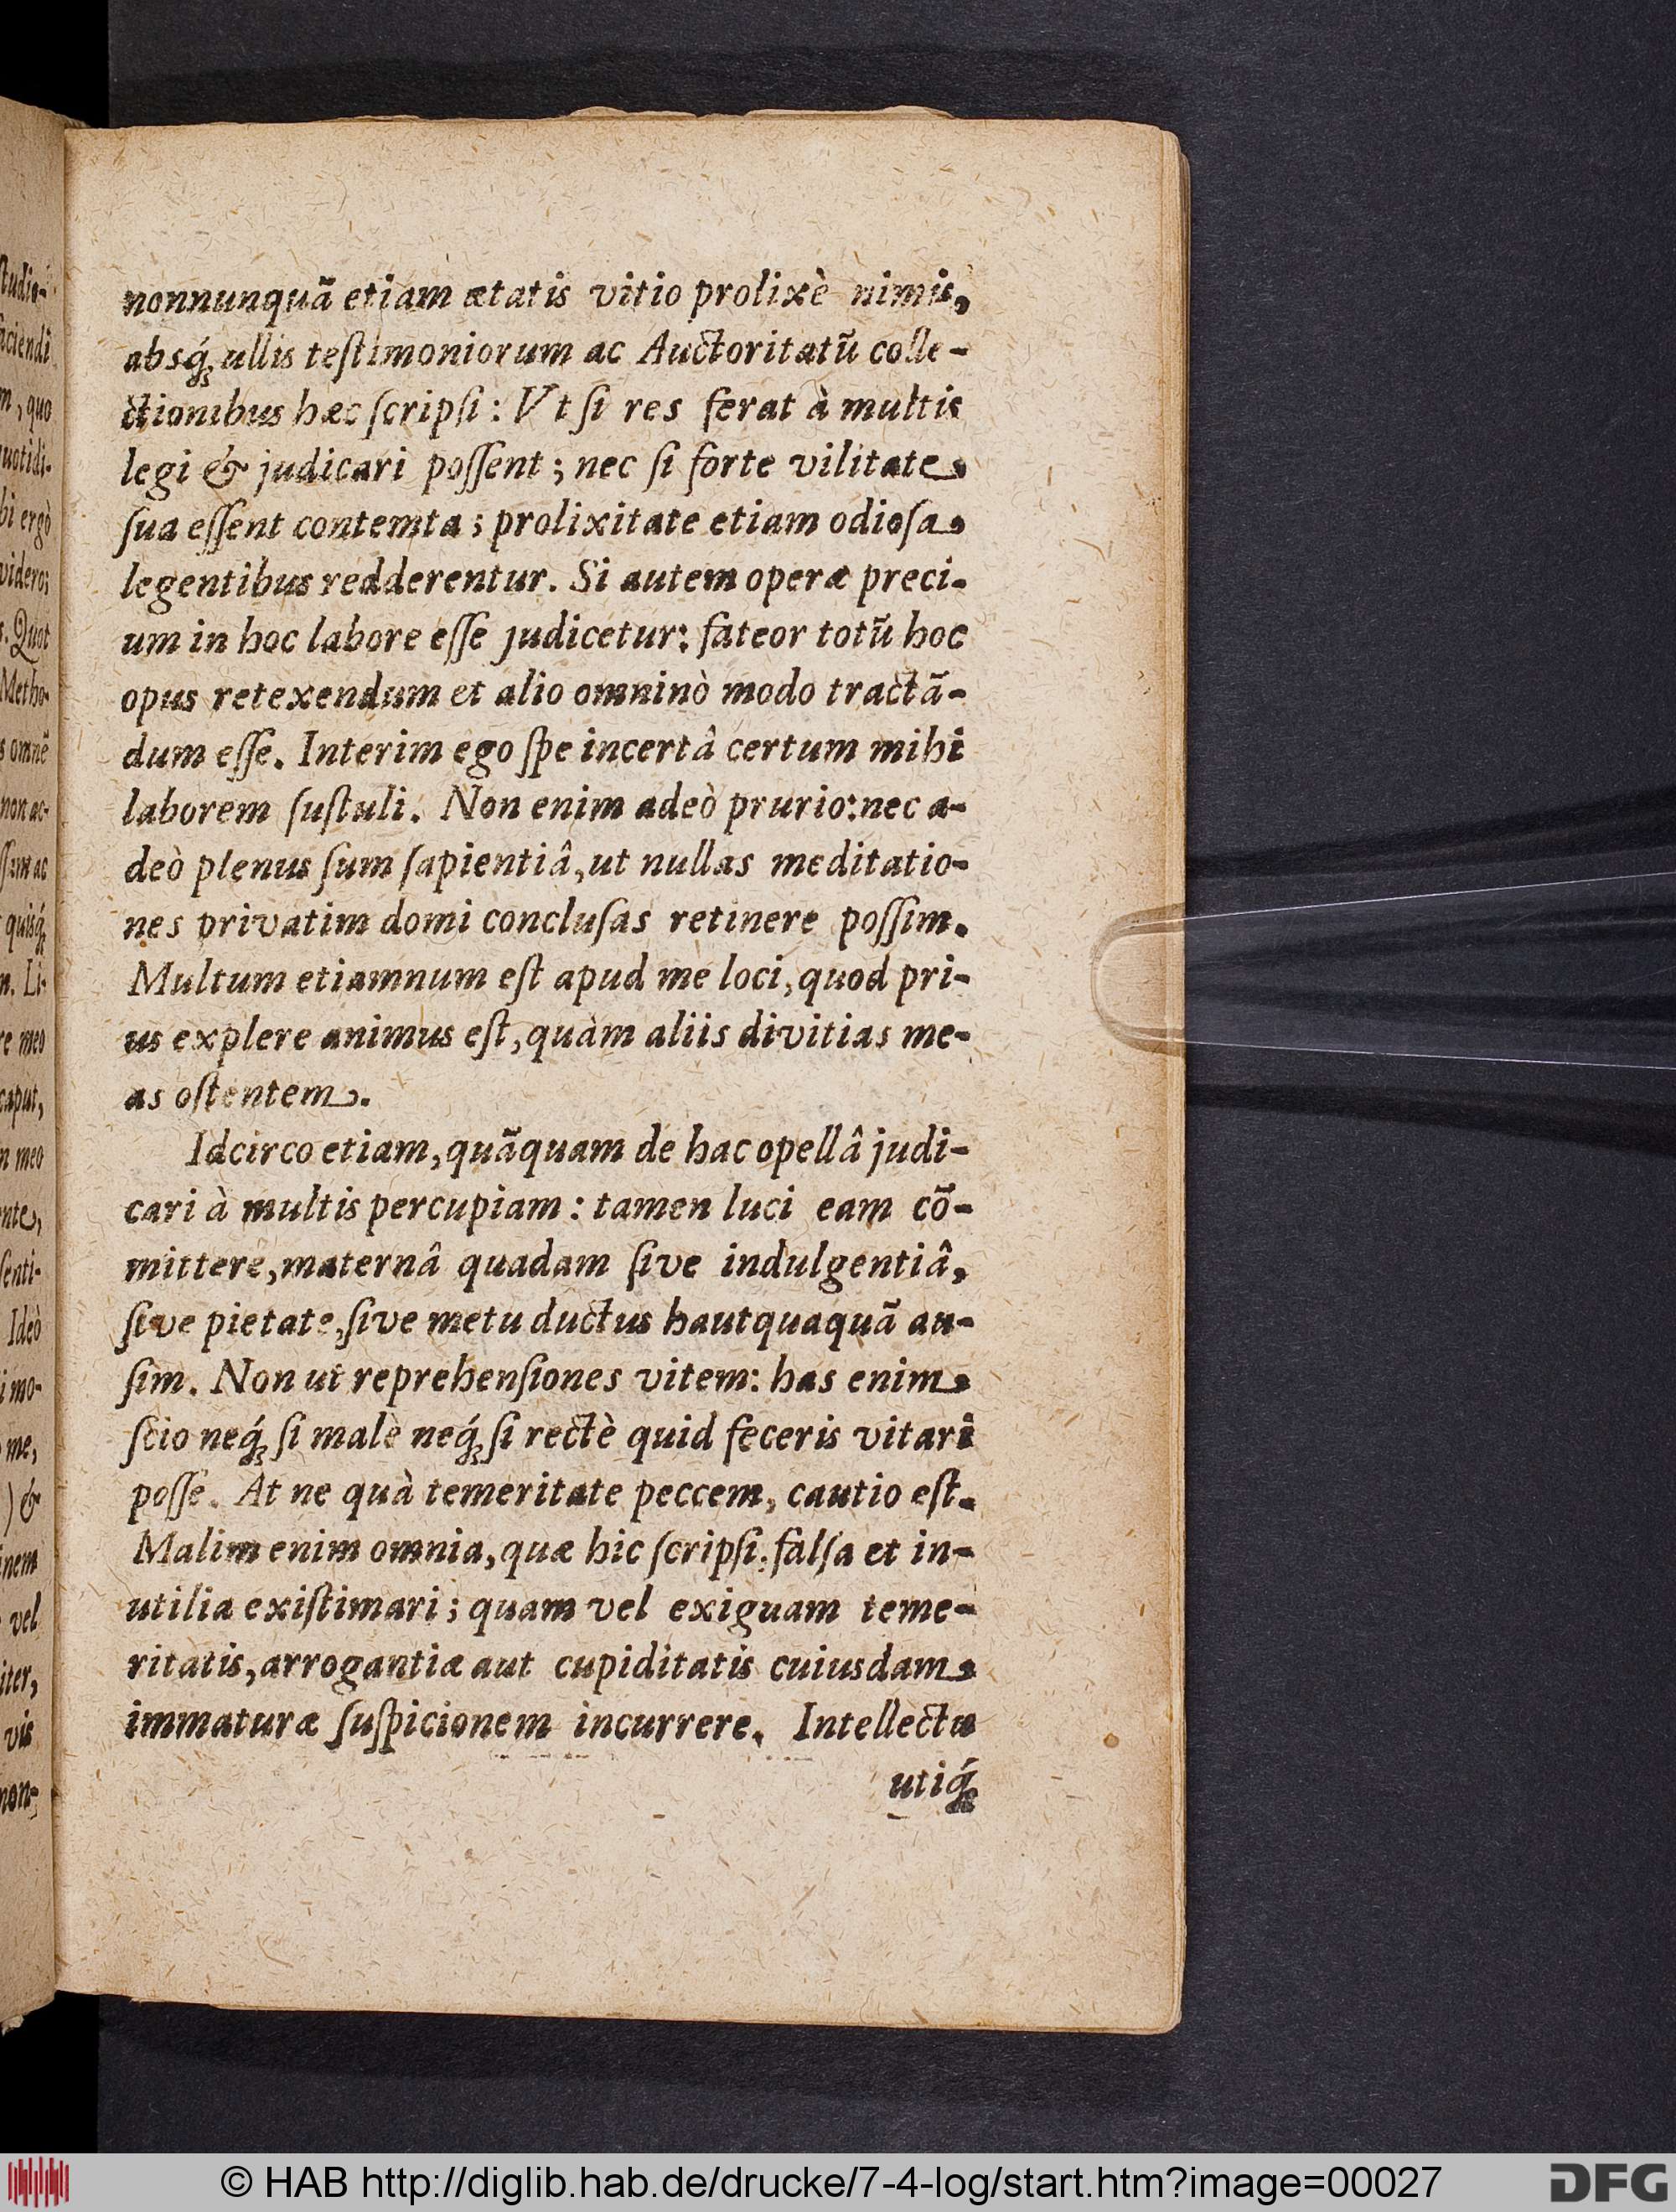 nonnunquã etiam ætatis vitio prolixè nimis,
absq́; ullis teſtimoniorum ac Auctoritatũ colle-
ctionibus hæc ſcripſi: Vt ſi res ferat à multis
legi & judicari poſſent; nec ſi forte vilitate
ſua eſſent contemta; prolixitate etiam odioſa
legentibus redderentur. Si autem operæ preci-
um in hoc labore eſſe judicetur: fateor totũ hoc
opus retexendum et alio omninò modo tractã-
dum eſſe. Interim ego ſpe incertâ certum mihi
laborem ſuſtuli. Non enim adeò prurio: nec a-
deò plenus ſum ſapientiâ, ut nullas meditatio-
nes privatim domi concluſas retinere poſſim.
Multum etiamnum eſt apud me loci, quod pri-
us explere animus eſt, quàm aliis divitias me-
as oſtentem.
Idcirco etiam, quãquam de hac opellâ judi-
cari à multis percupiam: tamen luci eam cõ-
mittere, maternâ quadam ſive indulgentiâ,
ſive pietate, ſive metu ductus hautquaquã au-
ſim. Non ut reprehenſiones vitem: has enim
ſcio neq́; ſi malè neq́; ſi rectè quid feceris vitari
poſſe. At ne quà temeritate peccem, cautio eſt.
Malim enim omnia, quæ hic ſcripſi, falſa et in-
utilia exiſtimari; quam vel exiguam teme-
ritatis, arrogantiæ aut cupiditatis cuiusdam
immaturæ ſuſpicionem incurrere. Intellectu
utiq́;
© HAB http://diglib.hab.de/drucke/7-4-log/start.htm?image=00027
DFG